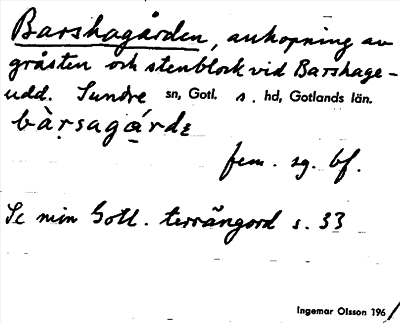 Barshagården, anhopning av
gråsten och stenblock vid Barshage-
udd. Sundre sn, Gotl. s. hd, Gotlands län.
bàṛsagá̱rdɛ
fem. sg. bf.
Se min Gotl. terrängord s. 33
Ingemar Olsson 1961